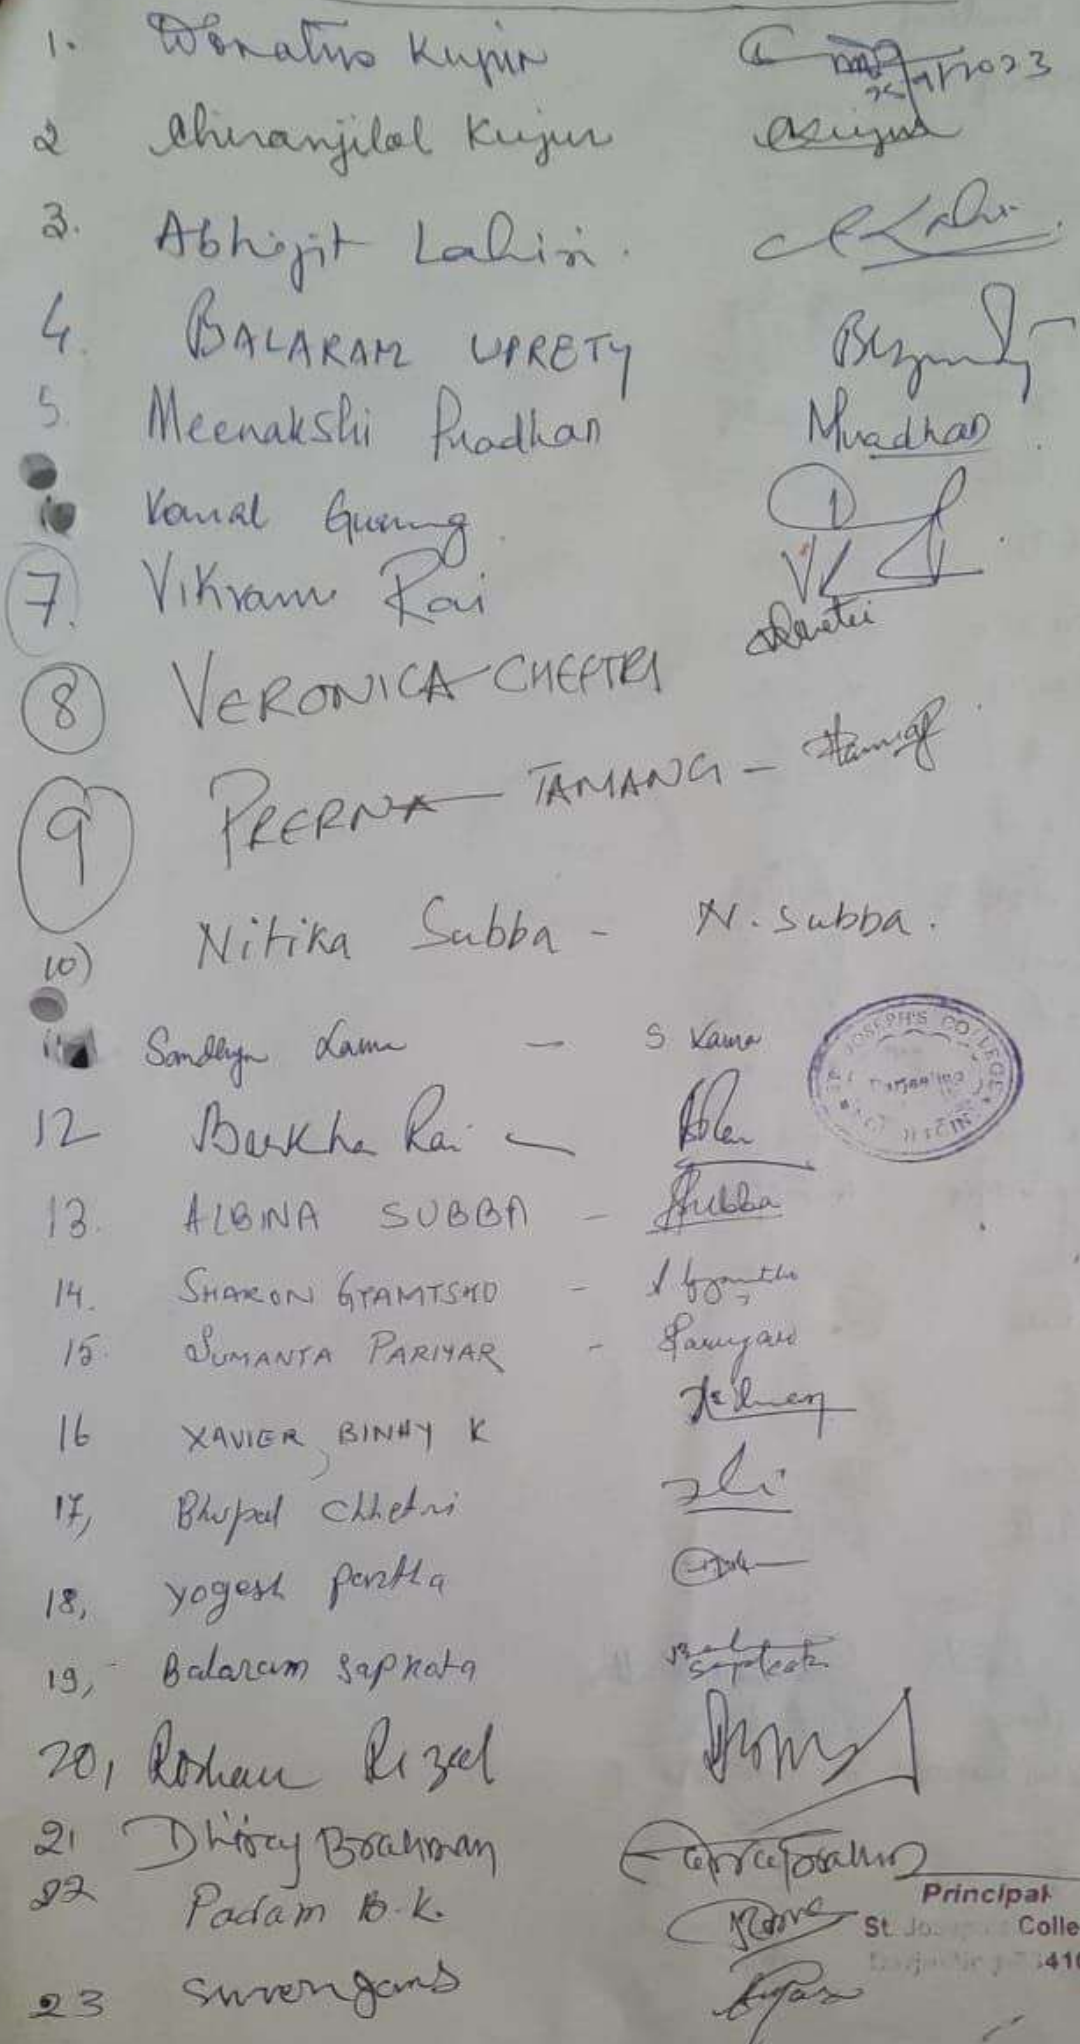 1. Donatus Kujur
25/9/2023
2 Chiranjilal Kujur CKujur
3. Abhijit Lahiri.
4. BALARAM UPRETY
5. Meenakshi Pradhan MPradhan
Kamal Gurung
7. Vikram Rai
8 VERONICA CHEETRI
9 PRERNA TAMANG -
10) Nitika Subba - N. Subba.
11 Sandhya Lama - S Lama
ST. JOSEPH'S COLLEGE
Darjeeling
12 Barkha Rai -
13. ALBINA SUBBA - ASubba
14. SHARON GYAMTSHO -
15. SUMANTA PARIYAR - SPariyar
16 XAVIER BINAY K
17, Bhupal Chhetri
18, Yogesh Pantha
19, Balaram Sapkota
20, Roshan Rizal
21 Dhiraj Brahman
22 Padam B.K.
Principal
St. Joseph's Colle
23